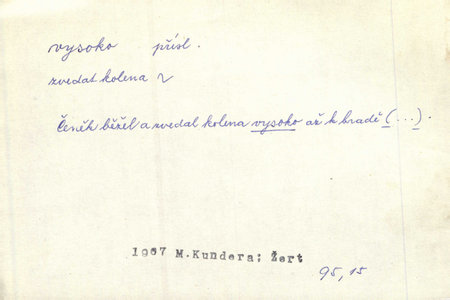 vysoko přísl.
zvedat kolena ~
Čeněk běžel a zvedal kolena vysoko až k bradě (...).
1967 M.Kundera; Žert
95, 15